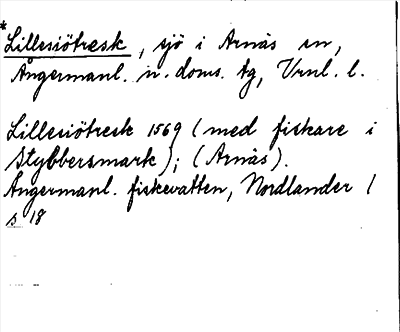 *Lillesiötresk, sjö i Arnäs sn,
Ångermanl. n. doms. tg, Vrnl. l.
Lillesiötresk 1569 (med fiskare i
Stybbersmark); (Arnäs).
Ångermanl. fiskevatten, Nordlander 1
s 18